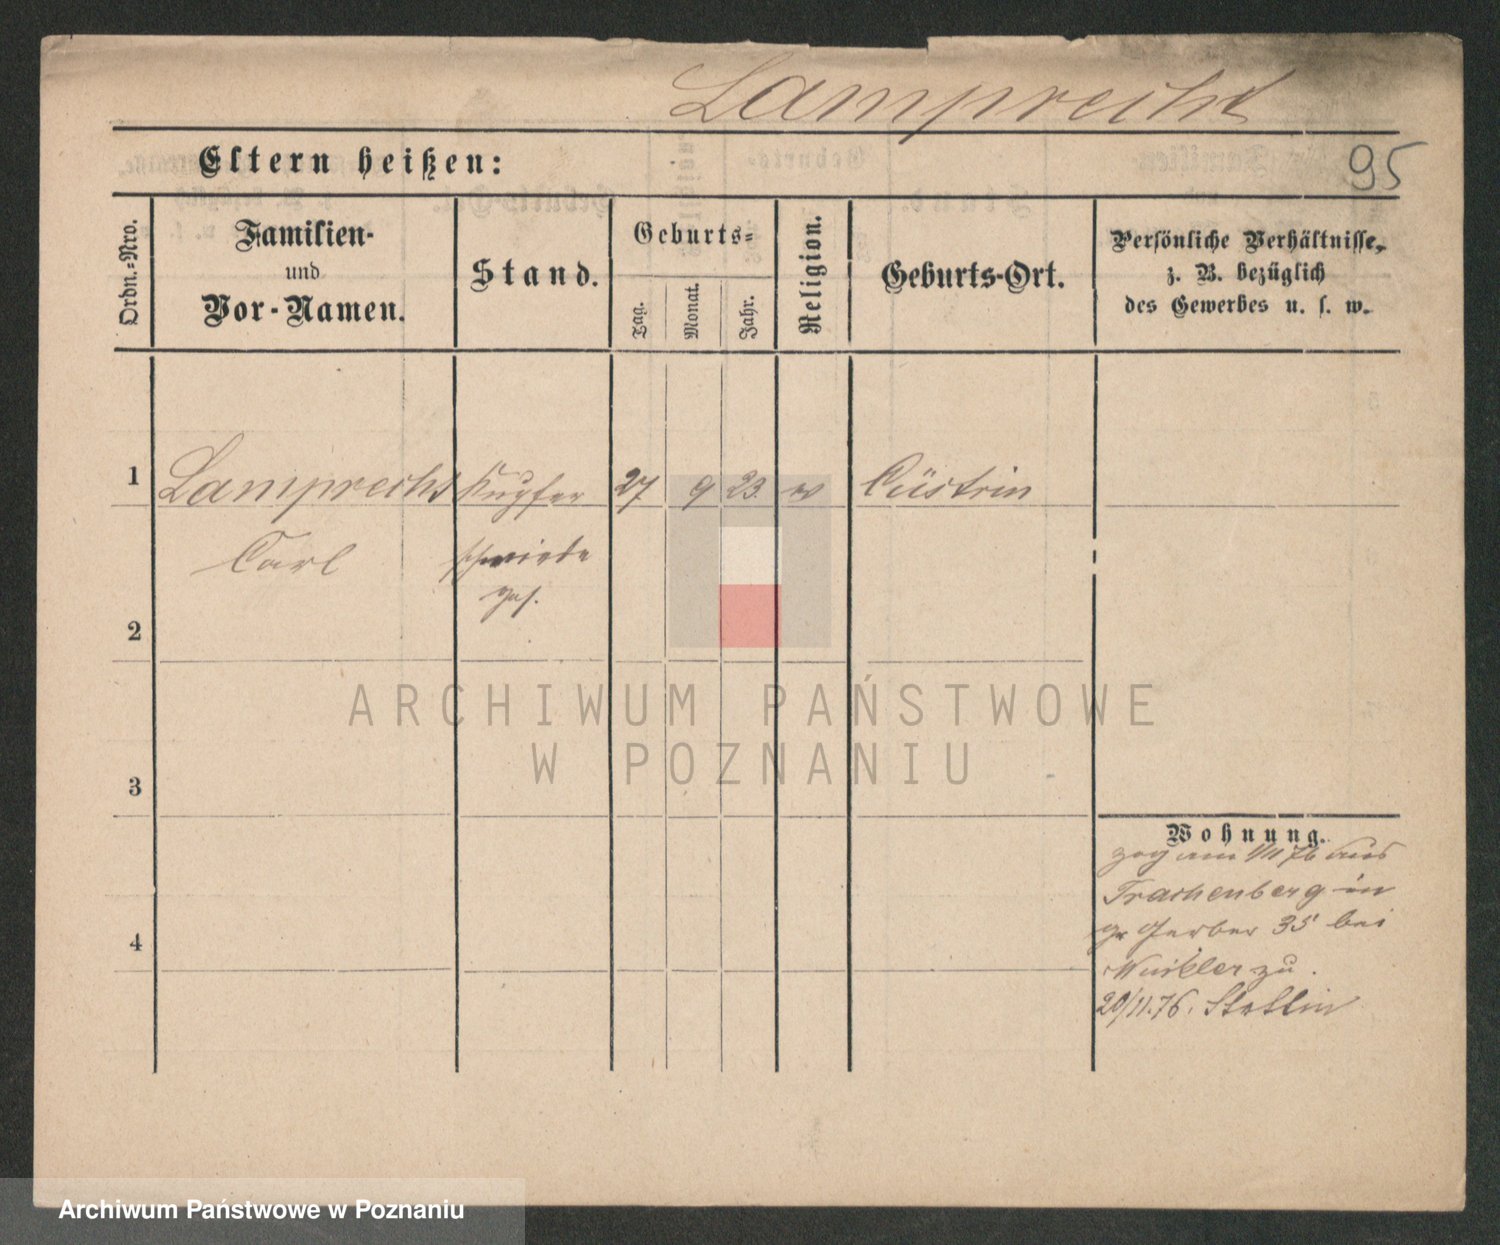 Lamprecht
Eltern heißen:
95
Ordn.-Nro.
Familien-
und
Vor-Namen.
Stand.
Geburts-
Tag.
Monat.
Jahr.
Religion.
Geburts-Ort.
Persönliche Verhältnisse,
z. B. bezüglich
des Gewerbes u. s. w.
1
Lamprecht
Kupfer
27
9
23.
Cüstrin
Carl
schmiede
ges.
2
ARCHIWUM PAŃSTWOWE
W POZNANIU
3
Wohnung.
zog am 1/11 76 aus
Trachenberg in
gr Gerber 35 bei
Winkler zu.
20/11.76. Stettin
4
Archiwum Państwowe w Poznaniu